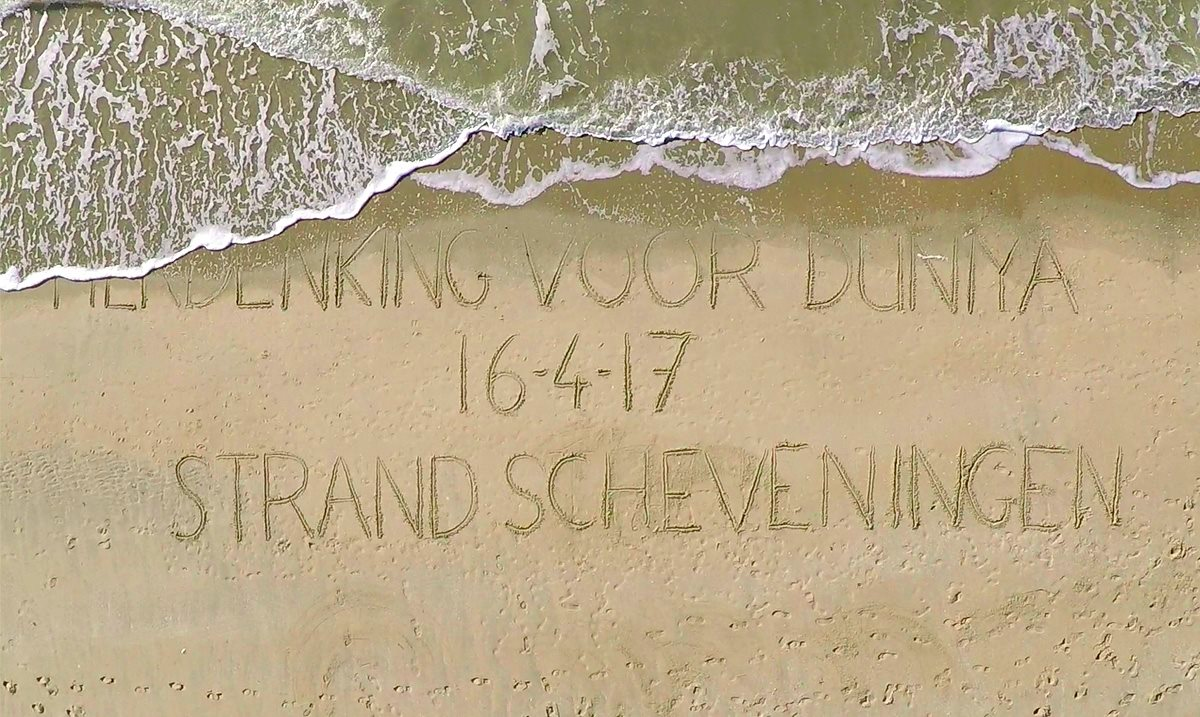 HERDENKING VOOR DUNIYA
16-4-17
STRAND SCHEVENINGEN